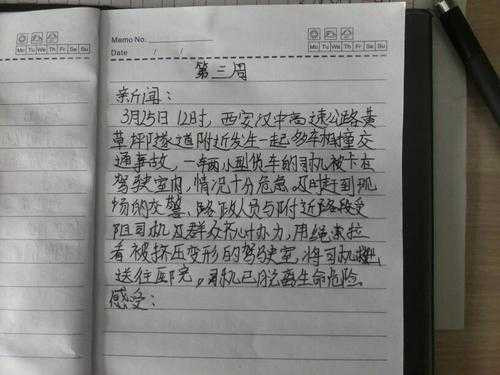 Mo Tu We Th Fr Sa Su
Memo No.
Date / /
Mo Tu We Th Fr Sa Su
第三周
新闻：
3月25日12时，西安汉中高速公路黄
草坪隧道附近发生一起多车相撞交
通事故，一辆小型货车的司机被卡在
驾驶室内，情况十分危急。及时赶到现
场的交警、路政人员与附近路段受
阻司机及群众齐心协力，用绳索拉
着被挤压变形的驾驶室，将司机
送往医院。司机已脱离生命危险。
感受：